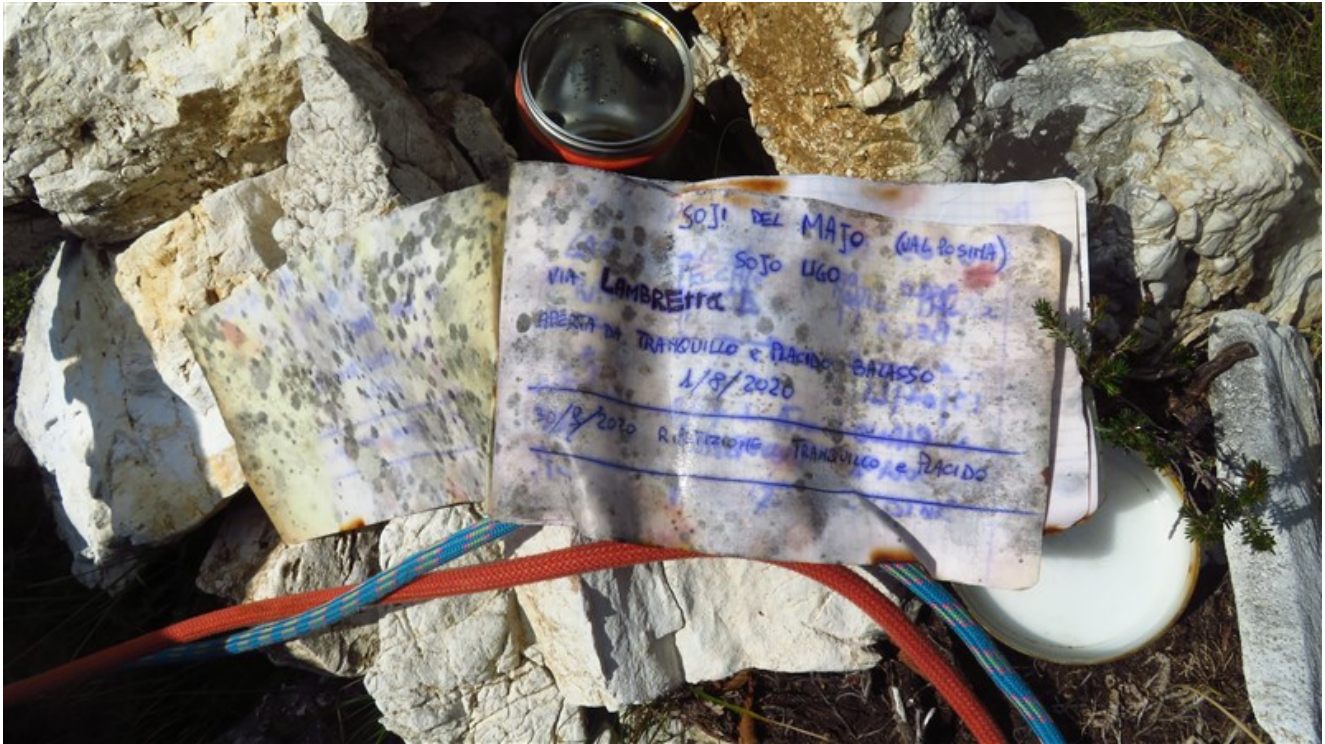 SOJI DEL MAJO (VAL POSINA)
SOJO UGO
VIA LAMBRETTA
APERTA DA TRANQUILLO e PLACIDO BALASSO
1/8/2020
30/8/2020 RIPETIZIONE TRANQUILLO e PLACIDO